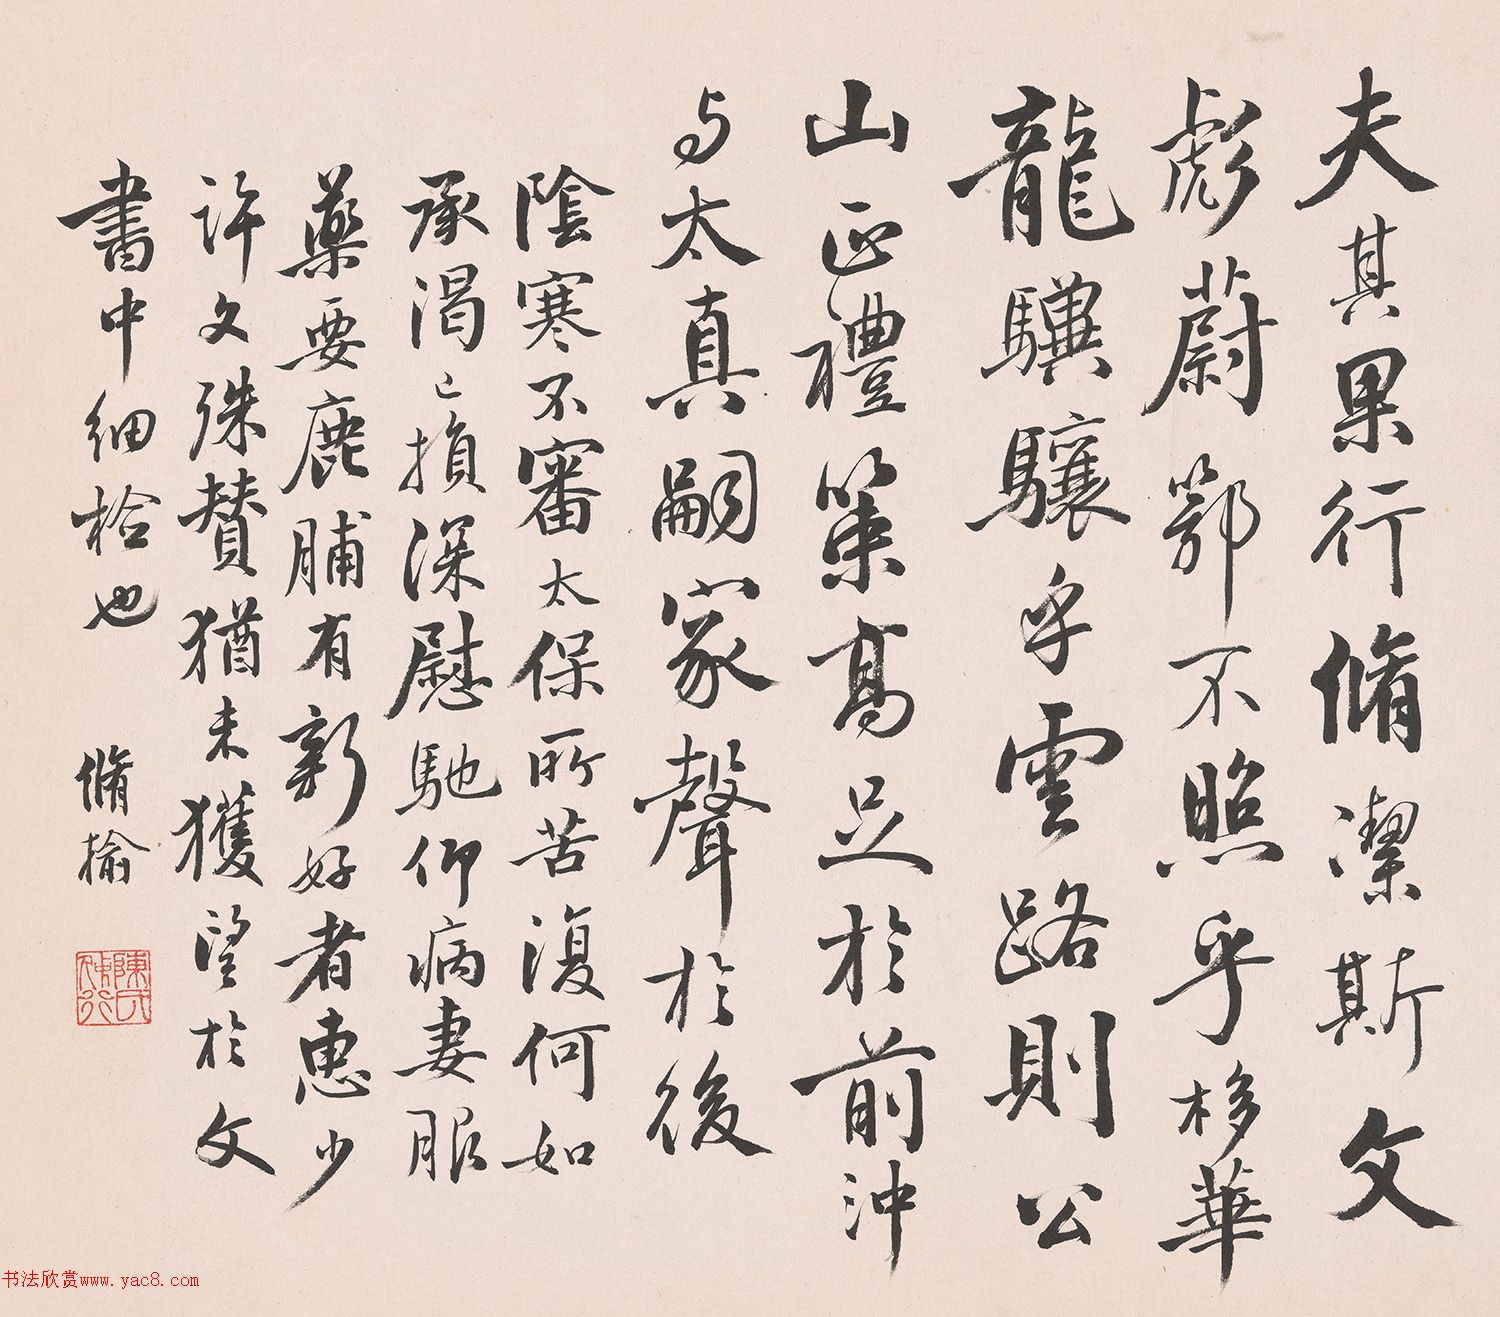 夫其果行脩潔斯文
彪蔚鄂不照乎移華
龍驥驤乎雲路則公
山正禮策高足於前沖
与太真嗣家聲於後
陰寒不審太保所苦復何如
承渴已損深慰馳仰病妻服
藥要鹿脯有新好者惠少
許文殊贊猶未獲望於文
書中細撿也
脩揄
陳氏
书法欣赏www.yac8.com